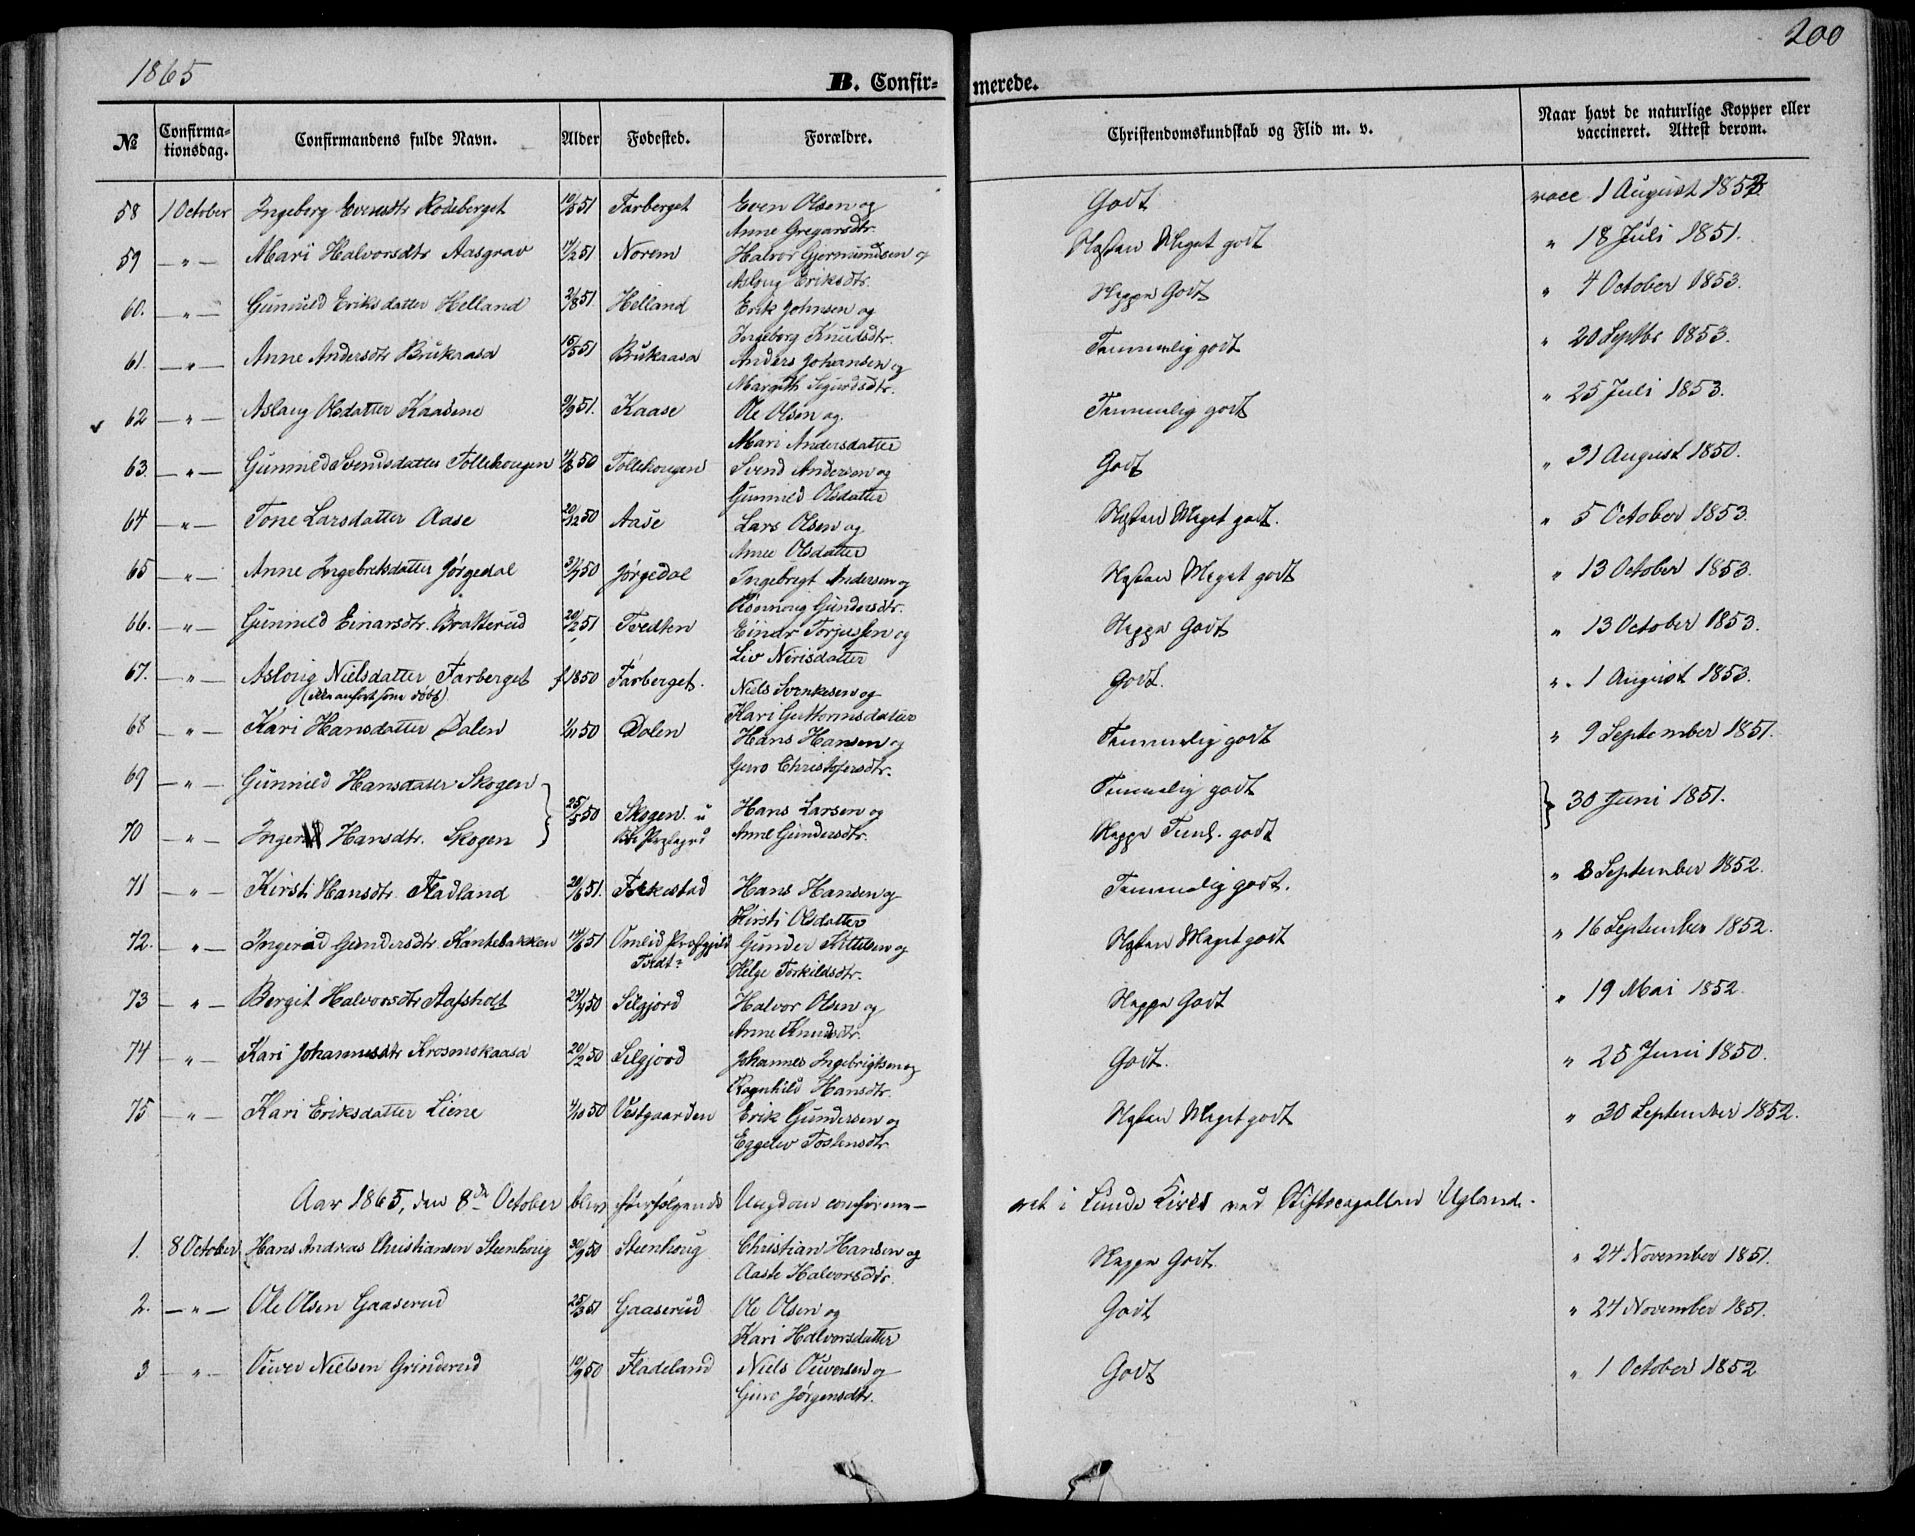 1865
200
B. Confirmerede.
№ Confirmationsdag. Confirmandens fulde Navn. Alder Fødested. Forældre. Christendomskundskab og Flid m. v. Naar havt de naturlige Kopper eller vaccineret. Attest derom.
58 1 October Ingeberg Evensdtr Rodeberget 10/5 51 Farberget Even Olsen og Godt vacc 1 August 1853
Anne Gregarsdtr.
59 — " — Mari Halvorsdtr Aasgrav 17/2 51 Norem Halvor Gjermundsen og Næsten Meget godt " 18 Juli 1851.
Aslaug Eriksdtr.
60. — " — Gunnild Eriksdatter Helland 2/8 51 Helland Erik Johnsen og Neppe Godt " 4 October 1853.
Ingeborg Knudsdtr.
61. — " — Anne Andersdtr Brukaasa 15/5 51 Brukaasa Anders Johansen og Temmelig godt " 20 Septbr 1853.
Margith Sigurdsdtr.
62 — " — Aslaug Olsdatter Kaasene 9/9 51. Kaase Ole Olsen og Temmelig godt " 25 Juli 1853.
Mari Andersdatter
63. — " — Gunnild Svendsdatter Tollehougen 50 Tollehougen Svend Andersen og Godt " 31 August 1850.
Gunnild Olsdatter
64 — " — Tone Larsdatter Aase 20/12 50 Aase Lars Olsen og Næsten Meget godt. " 5 October 1853.
Anne Olsdatter
65 — " — Anne Ingebretsdatter Jørgedal 50 Jørgedal Ingebrigt Andersen og Næsten Meget godt " 13 October 1853.
Gundersdtr.
66. — " — Gunnild Einarsdtr. Bratterud 20/2 51 Tvedten Einar Torjussen og Neppe Godt " 13 October 1853.
Liv Nerisdatter
67. — " — Asloug Nielsdatter Farberget f 1850 Farberget. Niels Svenkesen og Godt. " 1 August 1853.
(ikke anført som døbt) Kari Guttormsdatter
68 — " — Kari Hansdatter Dalen 1/11 50 Dolen Hans Hansen og Temmelig godt " 9 September 1851.
Guro Christofersdtr.
69 — " — Gunnild Hansdatter Skogen Temmelig godt
25/5 50 Skogen Hans Larsen og 30 Juni 1851.
70 — " — Inger Hansdtr. Skogen Anne Gundersdtr. Neppe Teml. godt
71 — " — Kirsti Hansdtr. Fladland 20/6 51. Folkestad Hans Hansen og Temmelig godt. " 8 September 1852.
Kirsti Olsdatter
72. — " — Ingerid Gundersdtr. Kantebakken 14/6 51 Omlid Præstgjeld Gunder Kittilsen og Næsten Meget godt " 16 September 1852.
Helge Torkildsdtr.
73 — " — Bergit Halvorsdtr Aafshodt 50 Silgjord Halvor Olsen og Neppe Godt " 19 Mai 1852.
Anne Knudsdtr.
74 — " — Kari Johannesdtr Krosmokaasa 20/2 50 Silgjord Johannes Ingebrigtsen og Godt. " 25 Juni 1850.
Ragnhild Hansdtr.
75 — " — Kari Eriksdatter Liene 4/10 50 Vestgaarden Erik Gundersen og Næsten Meget godt " 30 September 1852.
Eggelev Tostensdtr.
Aar 1865, den 8de October blev følgende Ungdom confirmeret i Lunde Kirke ved Stiftscapellan Ugland.
1. 8 October Hans Andreas Christiansen Steenhoug 30/9 50 Steenhoug Christian Hansen og Neppe Godt. " 24 November 1851.
Aaste Halvorsdtr.
2. — " — Ole Olsen Gaaserud 25/3 51 Gaaserud Ole Olsen og Godt " 24 November 1851.
Kari Halvorsdatter
3 — " — Ouver Nielsen Grinderud 10/9 50 Fladeland Niels Ouversen og Godt " 1 October 1852
Guro Jørgensdtr.